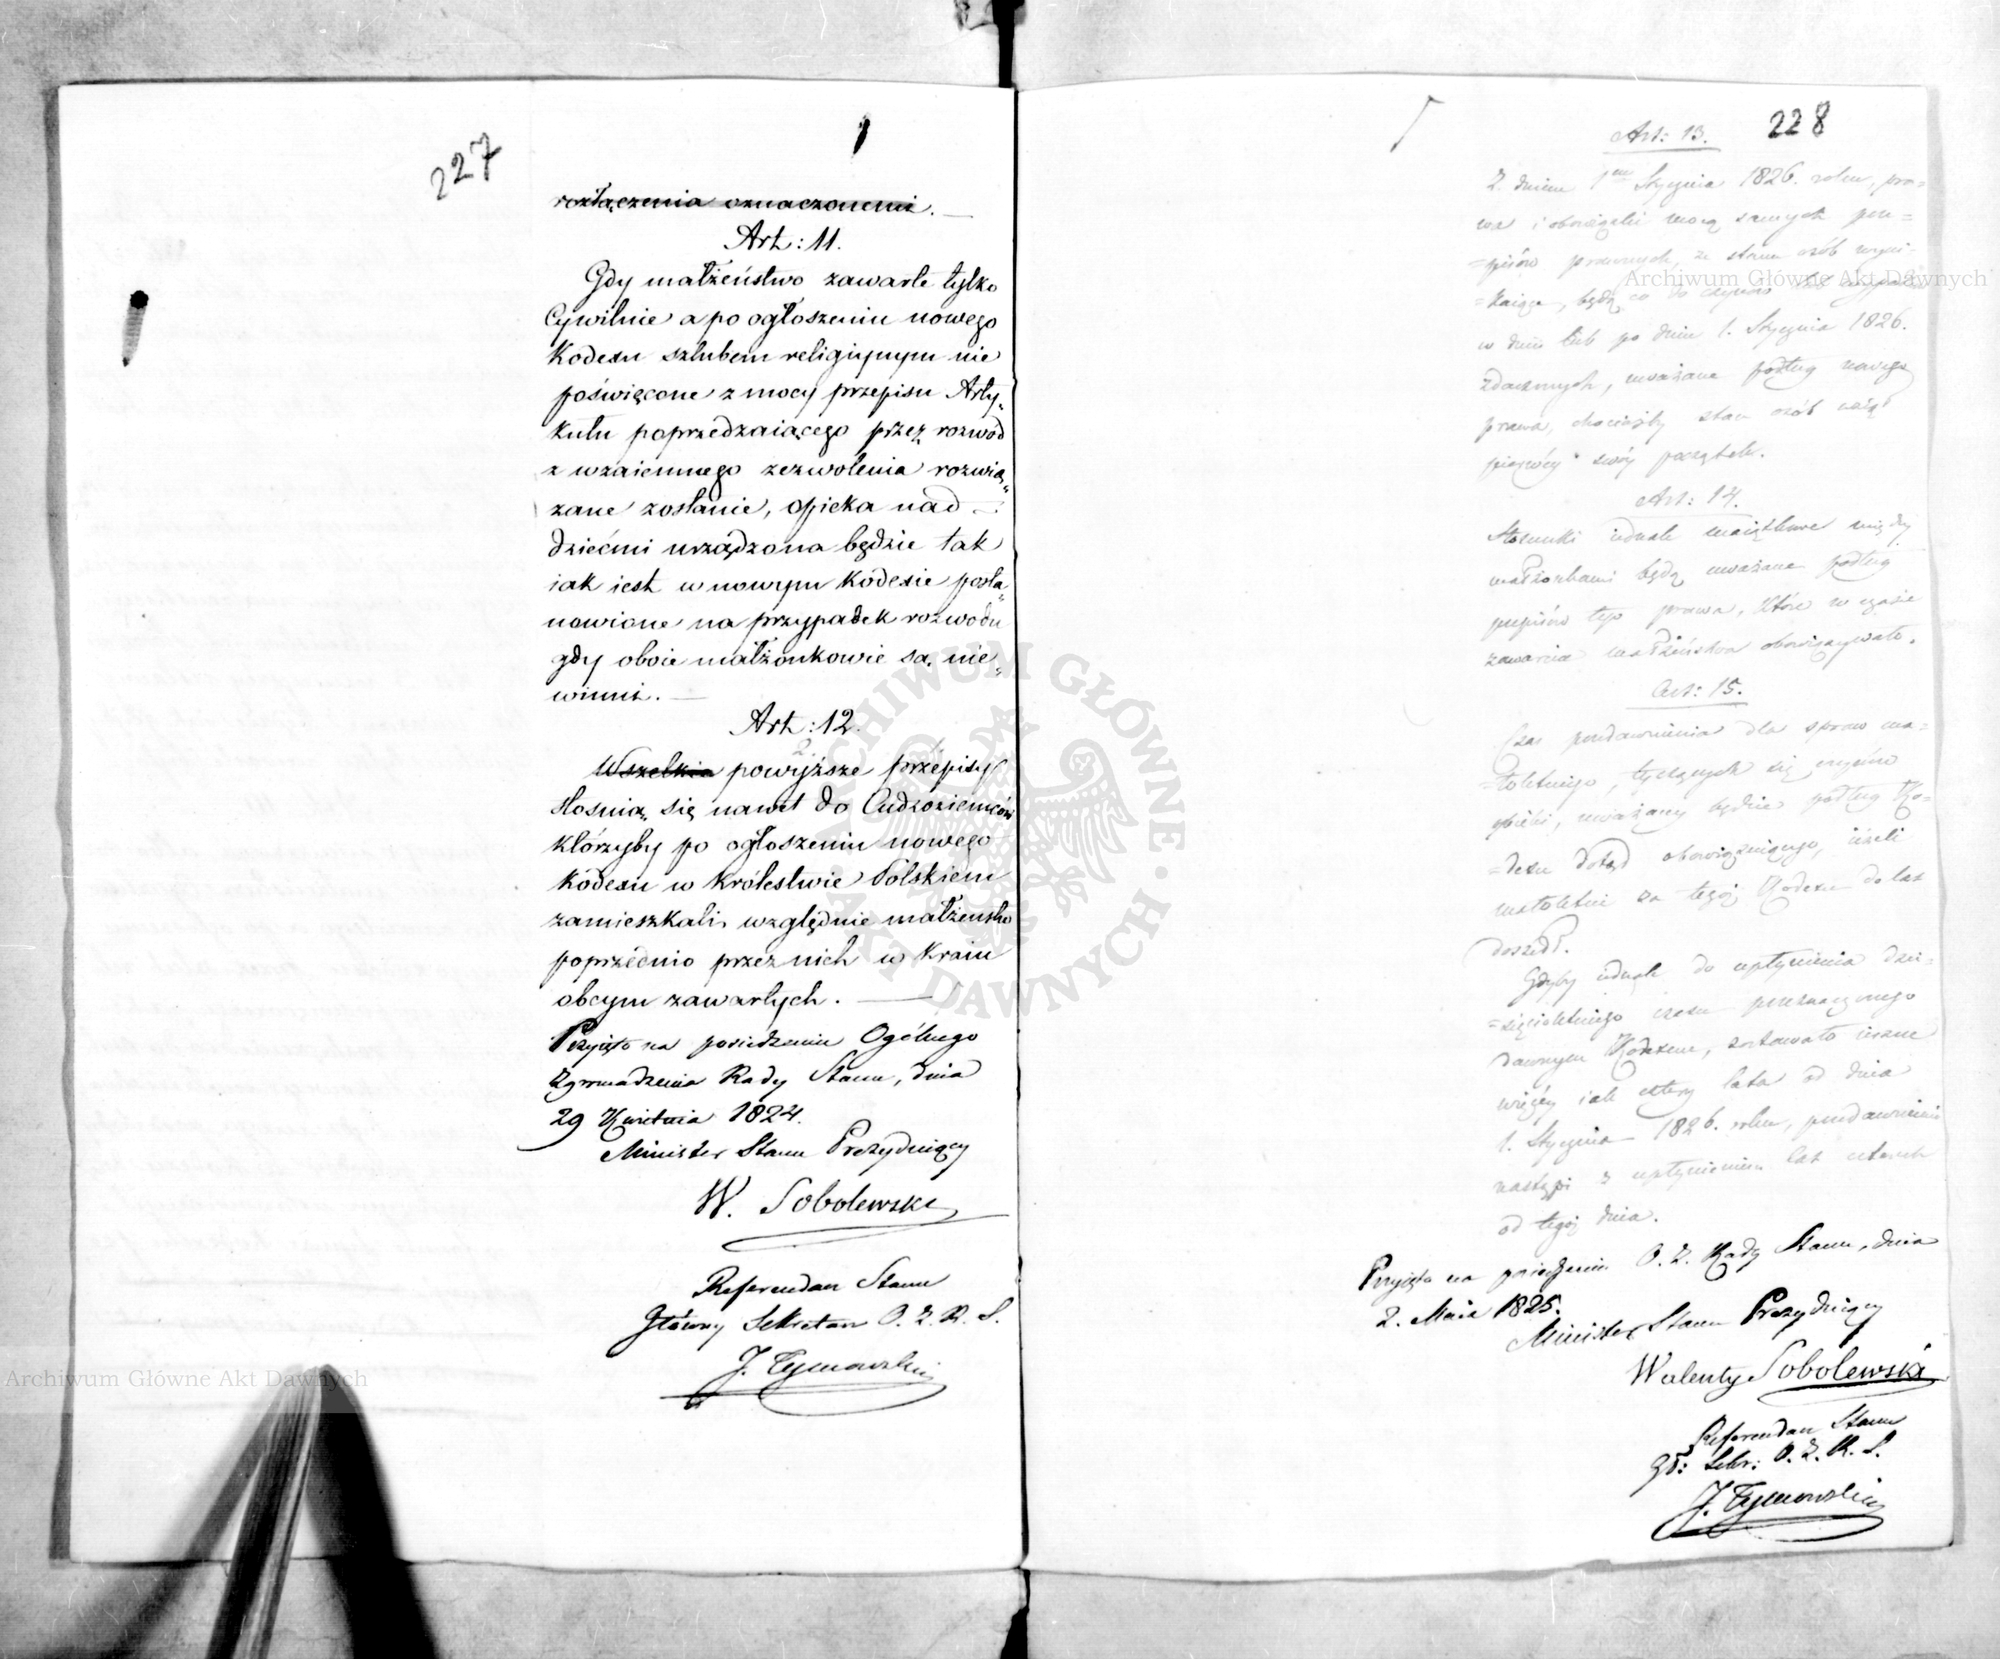 227
rozłączenia oznaczonemi. —
Art: 11.
Gdy małżeństwo zawarte tylko
Cywilnie a po ogłoszeniu nowego
Kodexu szlubem religijnym nie
poświęcone z mocy przepisu Arty„
kułu poprzedzaiącego przez rozwód
z wzaiemnego zezwolenia rozwią„
zane zostanie, opieka nad —
dziećmi urządzona będzie tak
iak iest w nowym Kodexie posta„
nowione na przypadek rozwodu
gdy oboie małżonkowie są nie„
winni. —
Art: 12.
Wszelkie powyższe przepisy
stosuią się nawet do Cudzoziemców
którzyby po ogłoszeniu nowego
Kodexu w Królestwie Polskiem
zamieszkali, względnie małżeństw
poprzednio przez nich w Kraiu
obcym zawartych. —
Przyięto na posiedzeniu Ogólnego
Zgromadzenia Rady Stanu, dnia
29 Kwietnia 1824.
Minister Stanu Prezyduiący
W. Sobolewski
Referendarz Stanu
Główny Sekretarz O. Z. R. S.
J. Tymowski
228
Art: 13.
Z dniem 1ym Stycznia 1826. roku, pra=
wa i obowiązki mocą samych prze=
=pisów prawnych, ze stanu osób wyni=
=kaiące, będą co do
w dniu lub po dniu 1. Stycznia 1826.
zdarzonych, uważane podług nowego
prawa, chociażby stan osób wziął
pierwéy swóy początek.
Art: 14.
Stosunki iednak maiątkowe między
małżonkami będą uważane podług
przepisów tego prawa, które w czasie
zawarcia małżeństwa obowiązywało.
Art: 15.
Czas przedawnienia dla spraw ma=
=łoletniego, tyczących się czynów
opieki, uważany będzie podług Ko=
=dexu dotąd obowiązuiącego, ieżeli
małoletni za tegoż Kodexu do lat
doszedł.
Gdyby iednak do upłynienia dzie=
=sięcioletniego czasu przeznaczonego
dawnym Kodexem, zostawało ieszcze
więcéy iak cztery lata od dnia
1. Stycznia 1826. roku, przedawnienie
nastąpi z upłynieniem lat czterech
od tegoż dnia.
Przyięto na posiedzeniu O. Z. Rady Stanu, dnia
2. Maia 1825.
Minister Stanu Prezyduiący
Walenty Sobolewski
Referendarz Stanu
Gł: Sekr: O. Z. R. S.
J. Tymowski
Archiwum Główne Akt Dawnych
Archiwum Główne Akt Dawnych
ARCHIWUM GŁÓWNE · AKT DAWNYCH ·